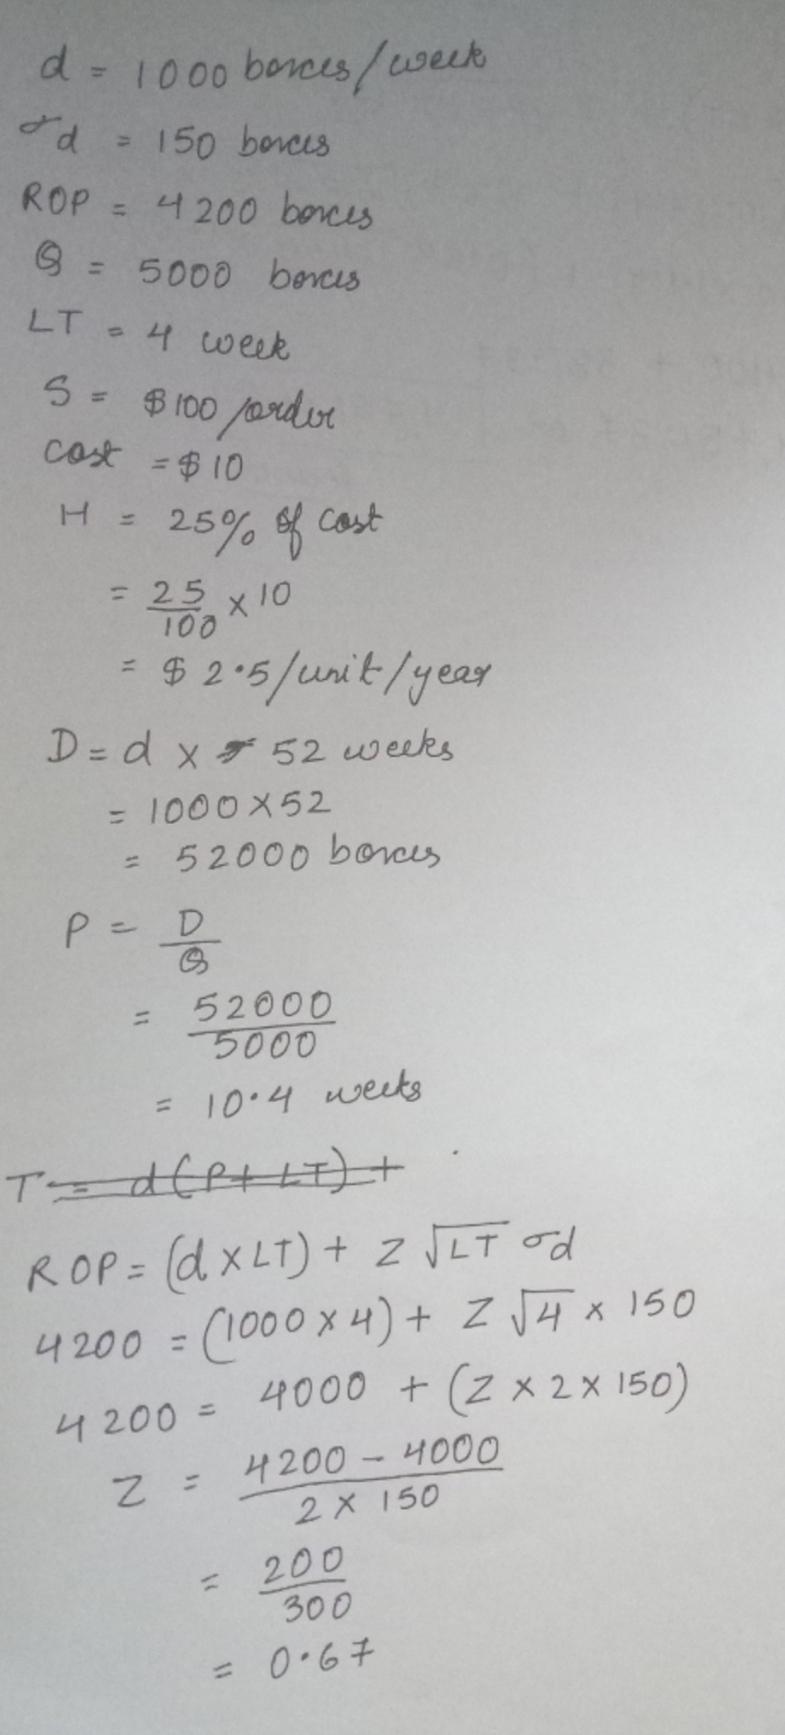 d = 1000 boxes/week
σd = 150 boxes
ROP = 4200 boxes
Q = 5000 boxes
LT = 4 week
S = $100/order
cost = $10
H = 25% of cost
= 25/100 × 10
= $2.5/unit/year
D = d × 52 weeks
= 1000×52
= 52000 boxes
P = D/Q
= 52000/5000
= 10.4 weeks
T = d(P+LT) +
ROP = (d×LT) + Z √LT σd
4200 = (1000×4) + Z √4 × 150
4200 = 4000 + (Z×2×150)
Z = 4200-4000/2×150
= 200/300
= 0.67